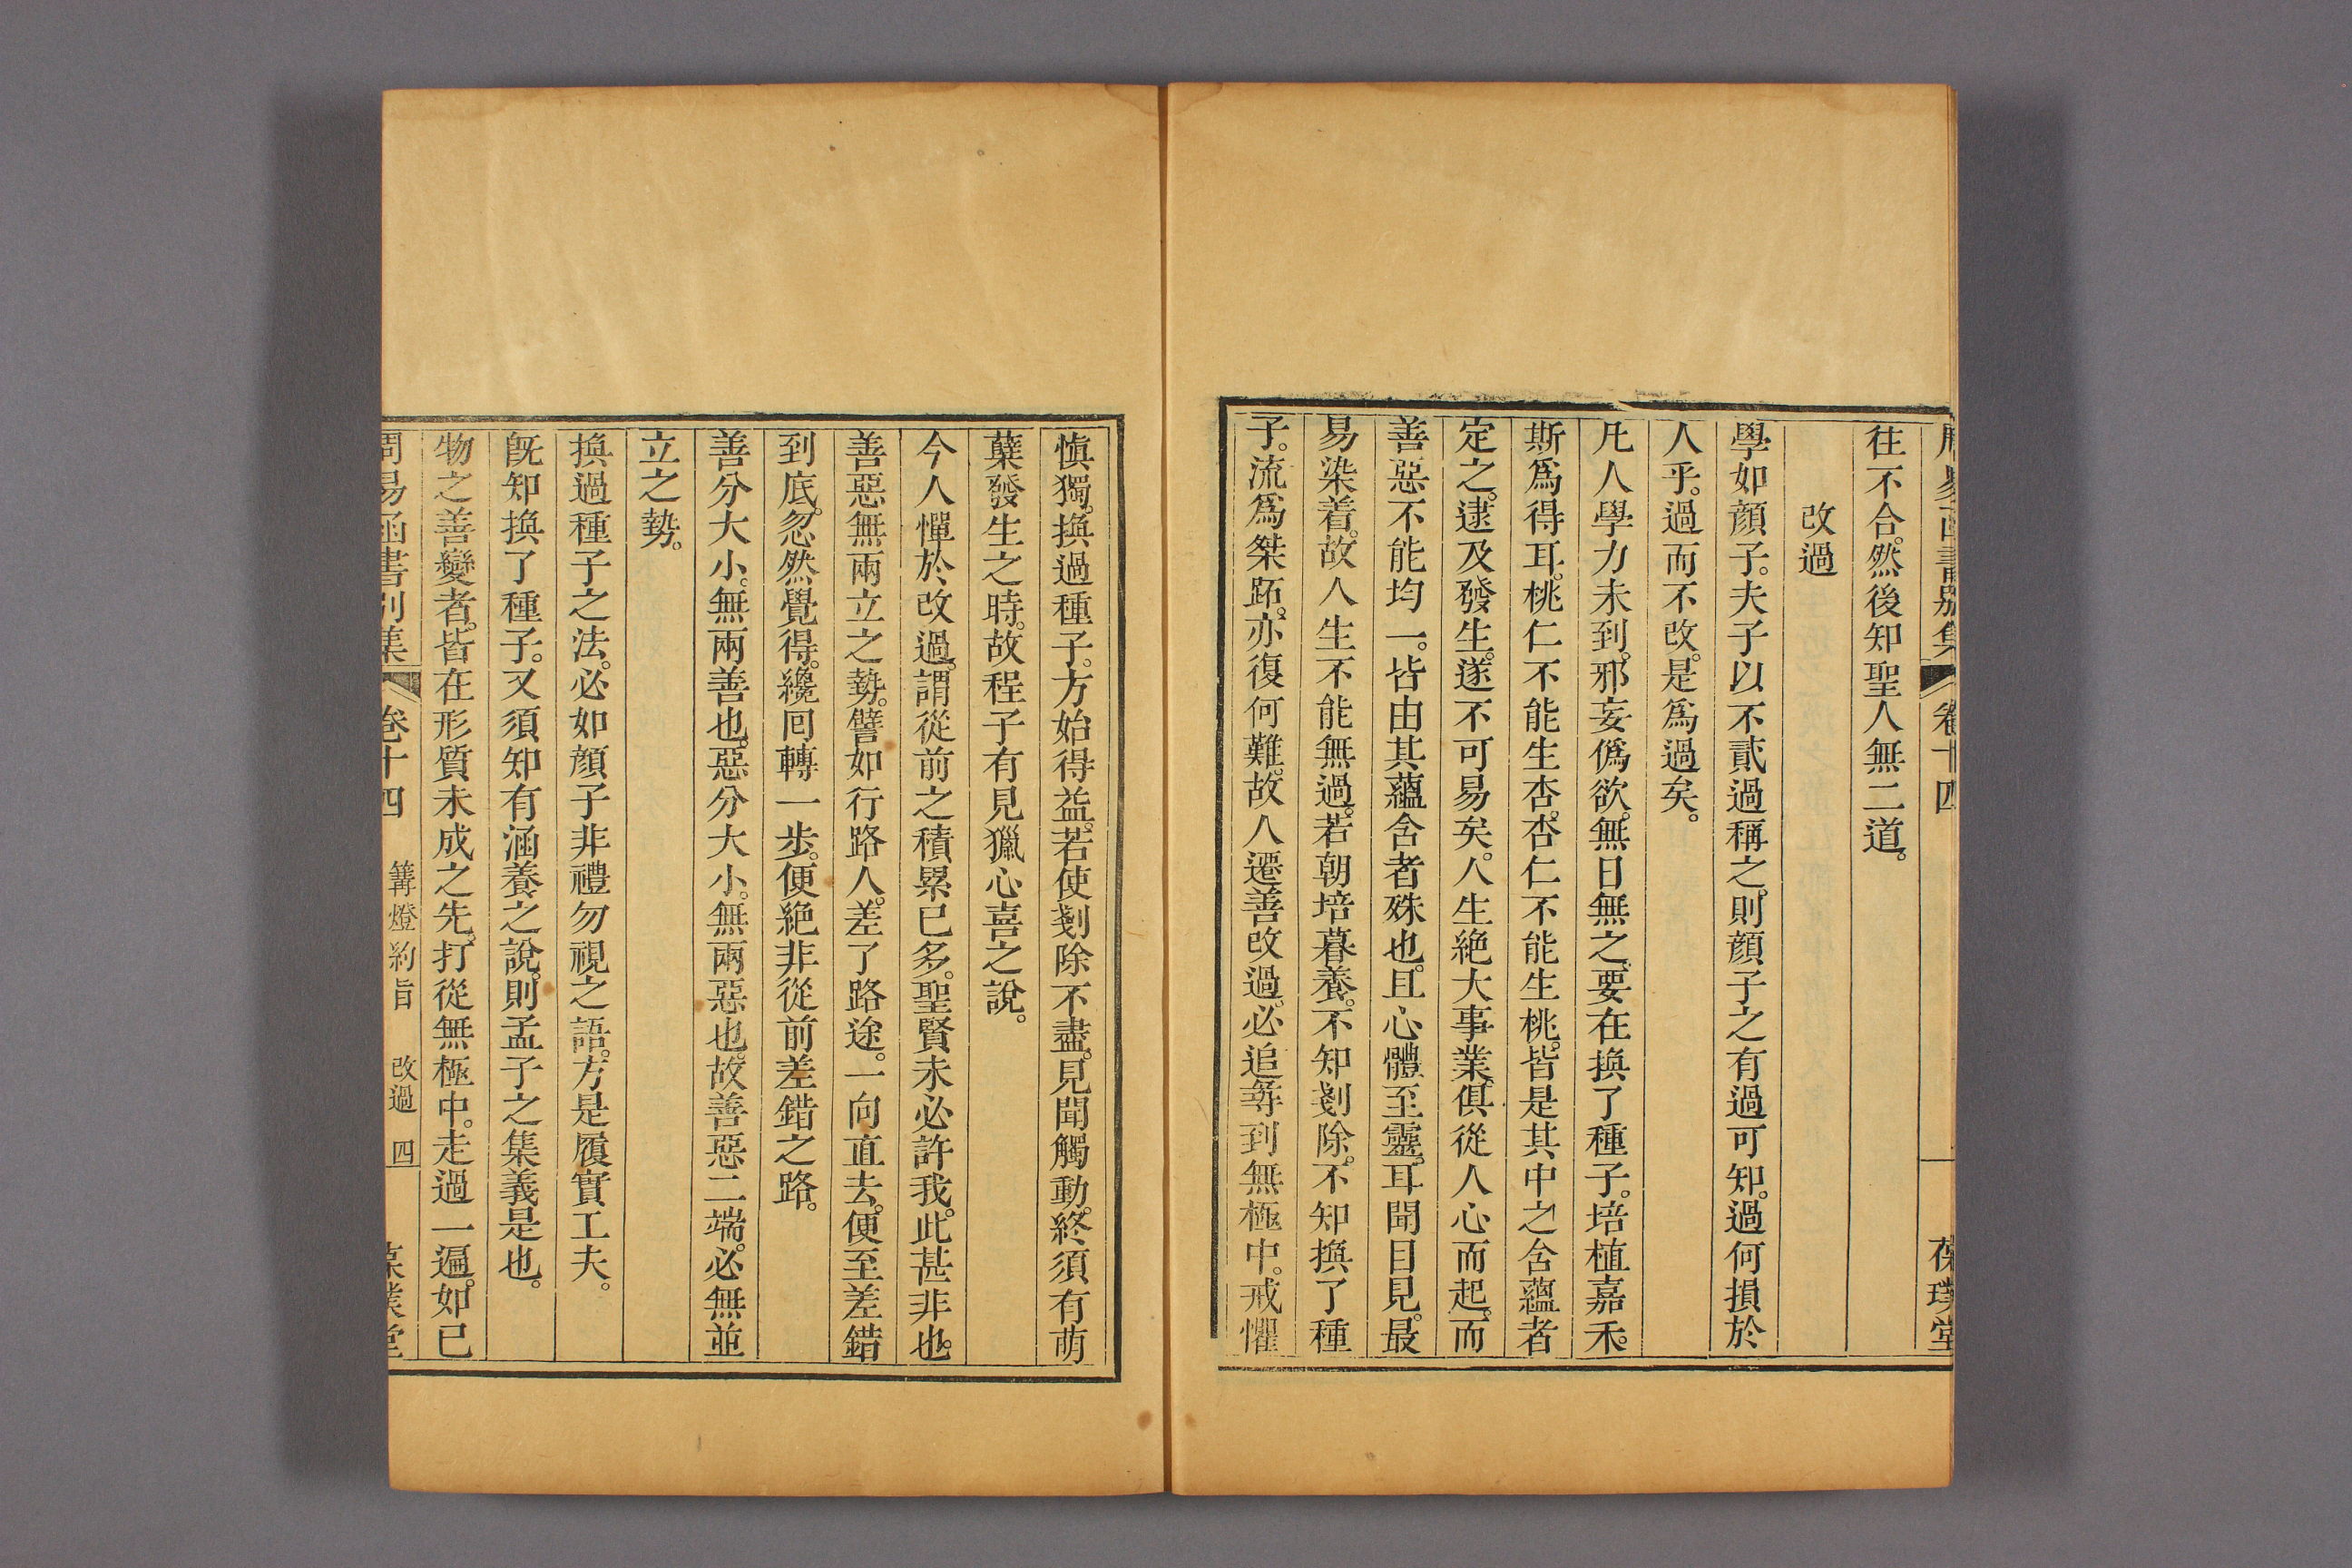 周易函書別集 卷十四 葆璞堂
往不合。然後知聖人無二道。
改過
學如顏子。夫子以不貳過稱之。則顏子之有過可知。過何損於
人乎。過而不改。是爲過矣。
凡人學力未到。邪妄僞欲。無日無之。要在換了種子。培植嘉禾。
斯爲得耳。桃仁不能生杏。杏仁不能生桃。皆是其中之含蘊者
定之。逮及發生。遂不可易矣。人生絕大事業。俱從人心而起。而
善惡不能均一。皆由其蘊含者殊也。且心體至靈。耳聞目見。最
易染着。故人生不能無過。若朝培暮養。不知剗除。不知換了種
子。流爲桀跖。亦復何難。故人遷善改過。必追尋到無極中。戒懼
慎獨。換過種子。方始得益。若使剗除不盡。見聞觸動。終須有萌
蘖發生之時。故程子有見獵心喜之說。
今人憚於改過。謂從前之積累已多。聖賢未必許我。此甚非也。
善惡無兩立之勢。譬如行路人。差了路途。一向直去。便至差錯
到底。忽然覺得。纔囘轉一步。便絕非從前差錯之路。
善分大小。無兩善也。惡分大小。無兩惡也。故善惡二端。必無並
立之勢。
換過種子之法。必如顏子非禮勿視之語。方是履實工夫。
旣知換了種子。又須知有涵養之說。則孟子之集義是也。
物之善變者。皆在形質未成之先。打從無極中。走過一遍。如已
周易函書別集 卷十四 篝燈約旨 改過 四 葆璞堂